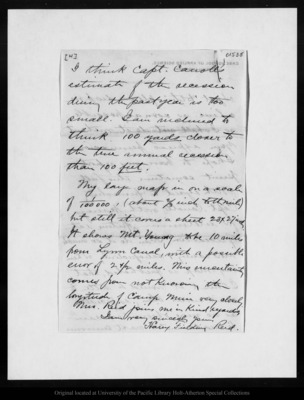 (4)
01528
I think Capt. Carroll's
estimate of the recession
during the past year is too
small. I am inclined to
think 100 yards closer to
the true annual recession
than 100 feet.
My large map is on a scale
of 1/100000, (about 5/8 inch to the mile)
but still it covers a sheet
It shows Mt. Young to be 10 miles
from Lynn Canal, with a possible
error of 2 miles. This uncertainty
comes from not knowing the
longitude of Camp Muir very closely.
Mrs. Reid joins me in kind regards
I am very sincerely yours
Harry Fielding Reid.
Original located at University of the Pacific Library Holt-Atherton Special Collections